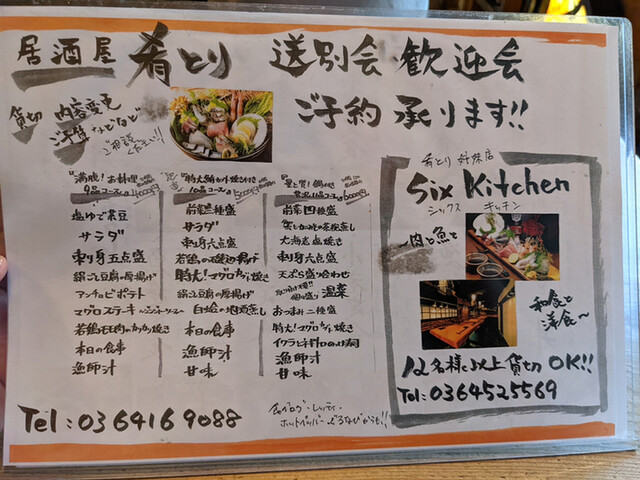 居酒屋 肴とり 送別会 歓迎会
ご予約 承ります!!
貸切 内容変更
ご予算 などなど
ご相談ください!!
満腹!お料理
9品コース
塩ゆで黒豆
サラダ
刺身五点盛
絹ごし豆腐の厚揚げ
アンチョビポテト
マグロステーキ
若鶏モモ肉のカリカリ焼き
本日の食事
漁師汁
特大鮪カツ焼き付き
10品コース
前菜三種盛
サラダ
刺身六点盛
若鶏の磯辺揚げ
特大!マグロカブト焼き
絹ごし豆腐の厚揚げ
白蛤の地酒蒸し
本日の食事
漁師汁
甘味
前菜四種盛
大海老塩焼き
刺身六点盛
天ぷら盛り合わせ
温菜
おつまみ二種盛
特大!マグロカブト焼き
漁師汁
甘味
肴とり 姉妹店
Six Kitchen
シックス キッチン
〜肉と魚と
和食と
洋食〜
12名様以上貸切OK!!
Tel:0364525569
Tel:0364169088
食べログ・レッティ・
ホットペッパー・ぐるなびからも!!